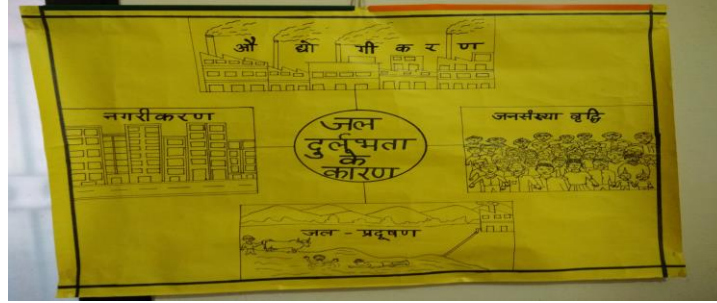 औ द्यो गी क र ण
नगरीकरण
जल
दुर्लभता
के
कारण
जनसंख्या वृद्धि
जल - प्रदूषण